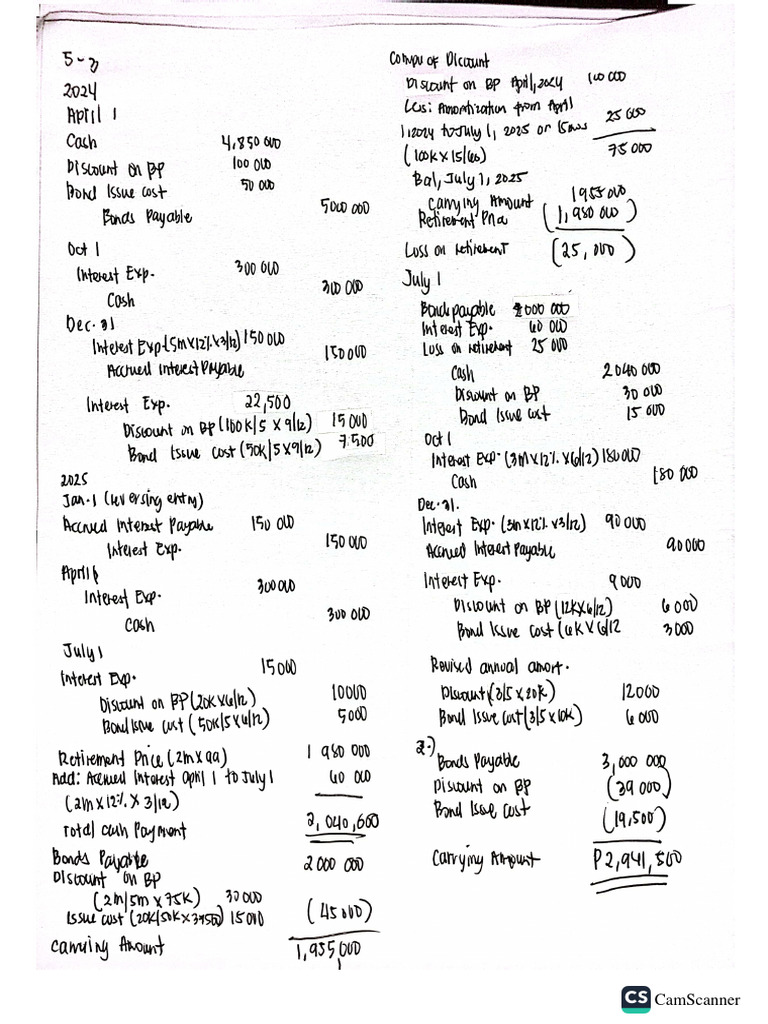 5-3
2024
April 1
Cash 4,850 000
Discount on BP 100 000
Bond Issue cost 50 000
Bonds Payable 5000 000
Oct 1
Interest Exp. 300 000
Cash 300 000
Dec. 31
Interest Exp. (5m x 12% x 3/12) 150 000
Accrued Interest Payable 150 000
Interest Exp. 22,500
Discount on BP (100K/5 x 9/12) 15 000
Bond Issue cost (50K/5 x 9/12) 7500
2025
Jan. 1 (reversing entry)
Accrued Interest Payable 150 000
Interest Exp. 150 000
April 1
Interest Exp. 300 000
Cash 300 000
July 1
Interest Exp. 15000
Discount on BP (20K x 6/12) 10000
Bond Issue cost (50K/5 x 6/12) 5000
Retirement Price (2m x 99) 1 980 000
Add: Accrued Interest April 1 to July 1 60 000
(2m x 12% x 3/12)
Total Cash Payment 2,040,000
Bonds Payable 2000 000
Discount on BP
(2m/5m x 75K) 30 000
Issue cost (20K/50K x 37500) 15000 (45000)
Carrying Amount 1,955 000
Compu of Dicount
Discount on BP April, 2024 100 000
Less: Amortization from April
1, 2024 to July 1, 2025 or 15mos 25 000
(100K x 15/60) 75 000
Bal, July 1, 2025
Carrying Amount 1955000
Retirement Price (1,980 000)
Loss on retirement (25,000)
July 1
Bonds payable 2000 000
Interest Exp. 60 000
Loss on retirement 25 000
Cash 2040 000
Discount on BP 30 000
Bond Issue cost 15 000
Oct 1
Interest Exp. (3m x 12% x 6/12) 180 000
Cash 180 000
Dec. 31.
Interest Exp. (3m x 12% x 3/12) 90 000
Accrued Interest Payable 90 000
Interest Exp. 9 000
Discount on BP (12K x 6/12) 6 000
Bond Issue cost (6K x 6/12 3 000
Revised annual amort.
Discount (3/5 x 20K) 12000
Bond Issue cost (3/5 x 10K) 6 000
2.)
Bonds Payable 3,000 000
Discount on BP (39 000)
Bond Issue cost (19,500)
Carrying Amount P2,941,500
CS CamScanner